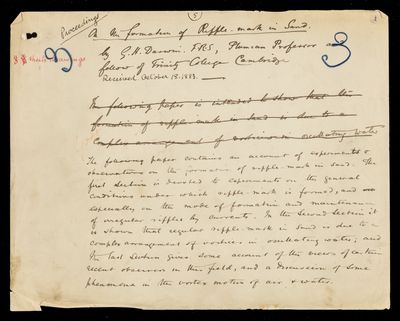 Proceedings
(5)
1
On the formation of Ripple-mark in Sand.
by G. H. Darwin. FRS, Plumian Professor &
fellow of Trinity College Cambridge
Received October 18. 1883.
3
3
The following paper is intended to show that the
formation of ripple mark in sand is due to a
complex arrangement of vortices in oscillating water
The following paper contains an account of experiments &
observations on the formation of ripple mark in sand. The
first section is devoted to experiments on the general
conditions under which ripple-mark is formed, and
especially on the mode of formation and maintenance
of irregular ripples by currents. In the Second Section it
is shown that regular ripple-mark in sand is due to a
complex arrangement of vortices in oscillating water; and
the last Section gives some account of the views of certain
recent observers in this field, and a discussion of some
phenomena in the vortex motion of air & water.